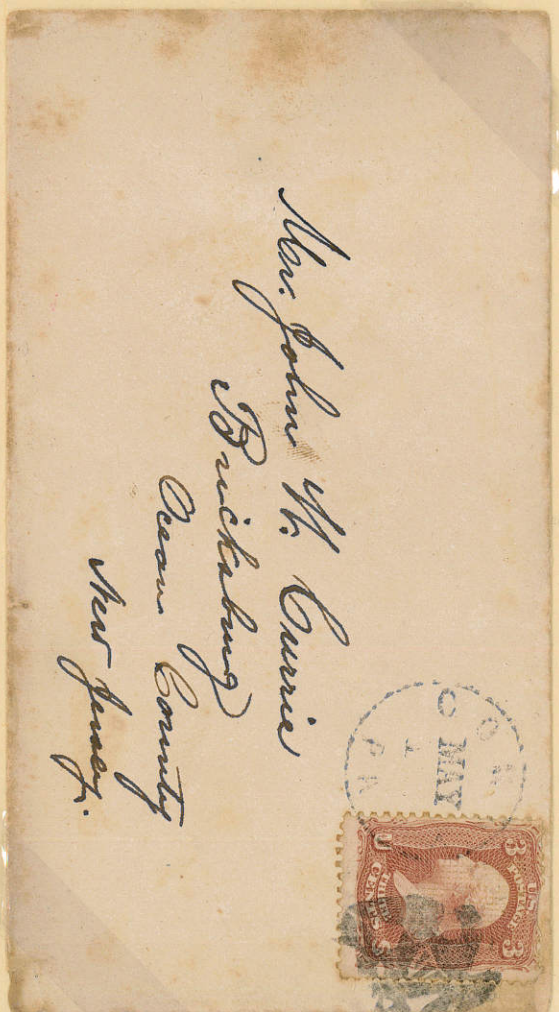 Mr. John W. Currie
Bricksburg
Ocean County
New Jersey.
MAY
PA
U.S. POSTAGE
3 3
THREE CENTS